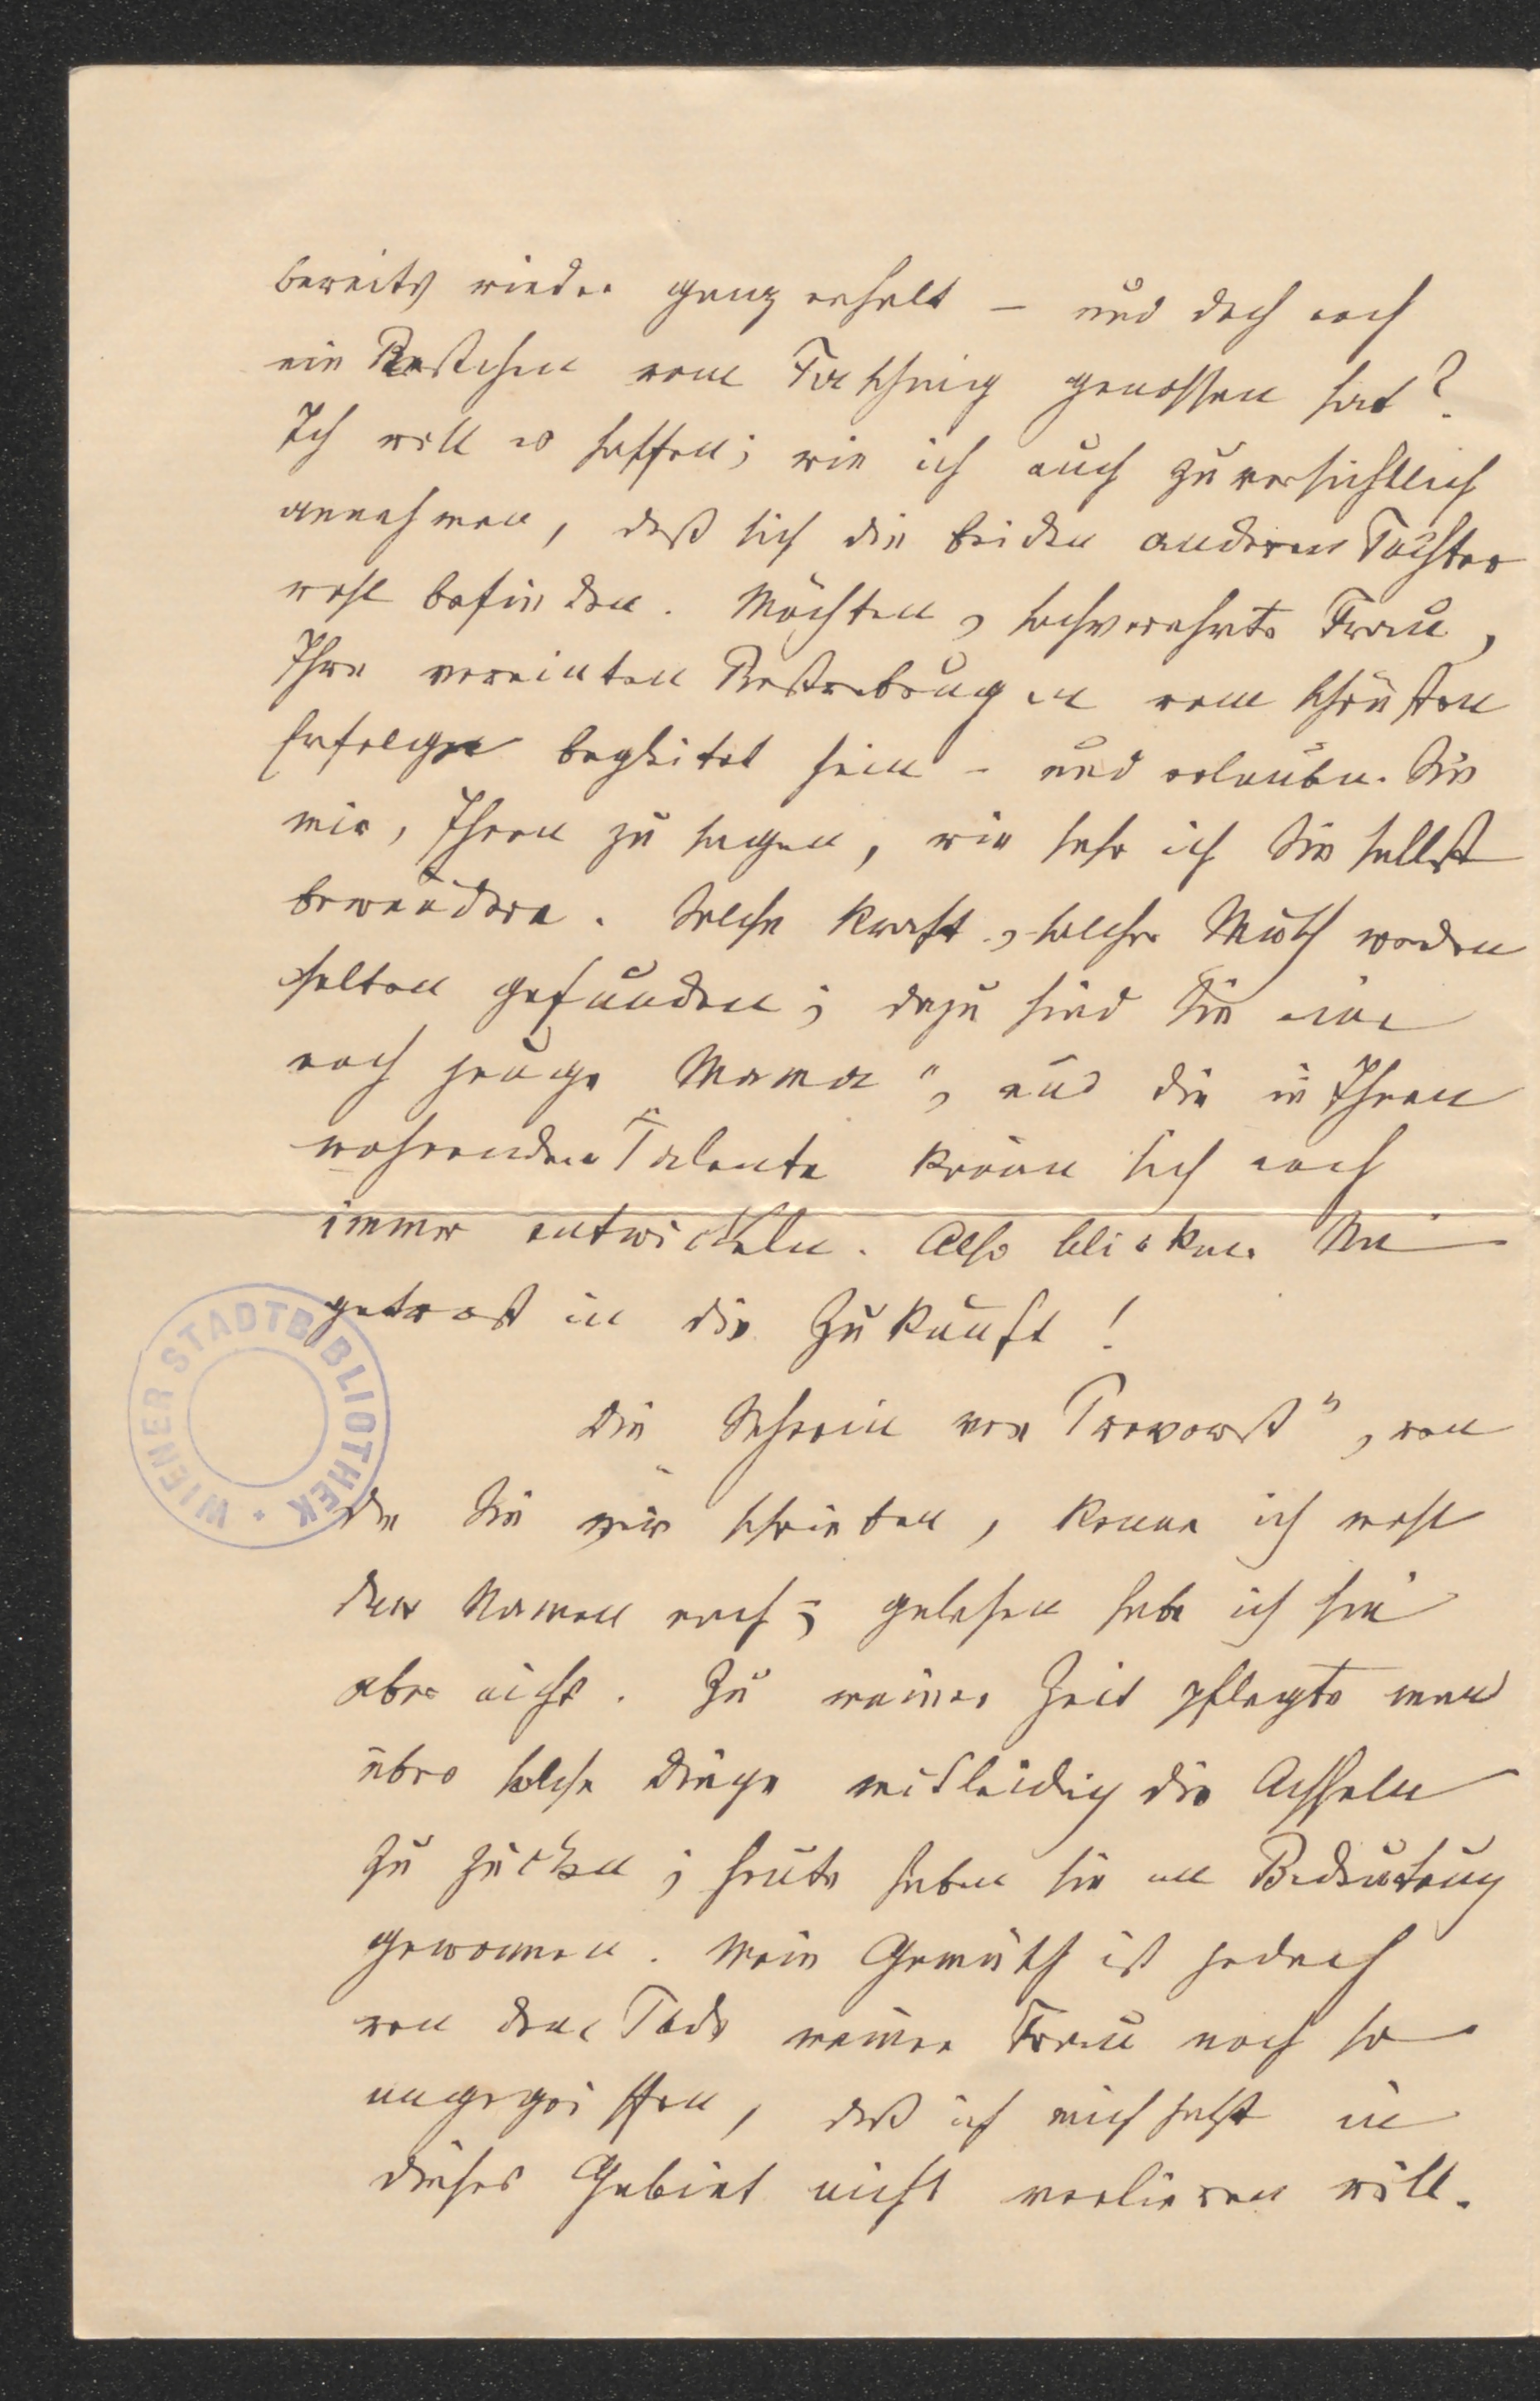 bereits wieder ganz erholt – und doch noch
ein Restchen vom Fasching genossen hat?
Ich will es hoffen; wie ich auch zuversichtlich
annehmen, daß sich die beiden anderen Töchter
wohl befinden. Möchten, hochverehrte Frau,
Ihre vereinten Bestrebungen vom schönsten
Erfolge begleitet sein – und erlauben Sie
mir, Ihnen zu sagen, wie sehr ich Sie selbst
bewundere. Solche Kraft, solcher Muth werden
selten gefunden; dazu sind Sie eine
noch junge „Mama", und die in Ihnen
wohnenden Talente können sich noch
immer entwickeln. Also blicken Sie
getrost in die Zukunft!
Die „Seherin von Prevorst", von
der Sie mir schrieben, kenne ich wohl
dem Namen nach; gelesen habe ich sie
aber nicht. Zu meiner Zeit pflegte man
über solche Dinge mitleidig die Achseln
zu zucken; heute haben sie an Bedeutung
gewonnen. Mein Gemüth ist jedoch
von dem Tode meiner Frau noch so
angegriffen, daß ich mich jetzt in
dieses Gebiet nicht verlieren will.
WIENER STADTBIBLIOTHEK